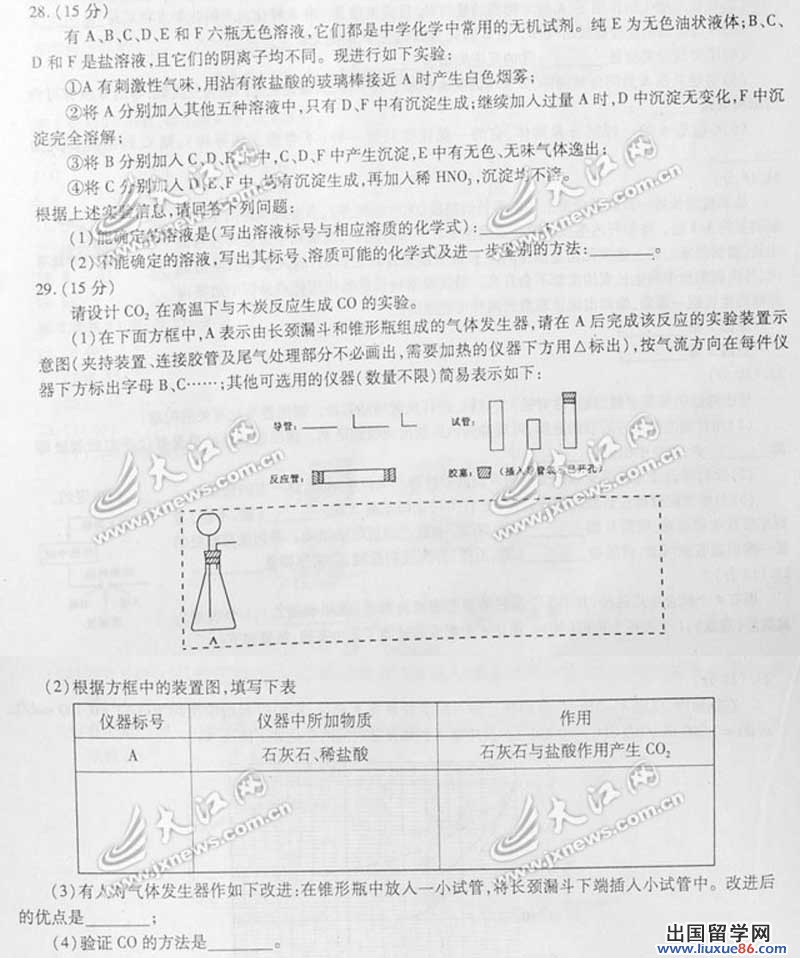 28.(15分)
有A、B、C、D、E和F六瓶无色溶液,它们都是中学化学中常用的无机试剂。纯E为无色油状液体;B、C、
D和F是盐溶液,且它们的阴离子均不同。现进行如下实验:
①A有刺激性气味,用沾有浓盐酸的玻璃棒接近A时产生白色烟雾;
②将A分别加入其他五种溶液中,只有D、F中有沉淀生成;继续加入过量A时,D中沉淀无变化,F中沉
淀完全溶解;
③将B分别加入C、D、E、F中,C、D、F中产生沉淀,E中有无色、无味气体逸出;
④将C分别加入D、E、F中,均有沉淀生成,再加入稀HNO₃,沉淀均不溶。
根据上述实验信息,请回答下列问题:
(1)能确定的溶液是(写出溶液标号与相应溶质的化学式):
(2)不能确定的溶液,写出其标号、溶质可能的化学式及进一步鉴别的方法:________。
29.(15分)
请设计CO₂在高温下与木炭反应生成CO的实验。
(1)在下面方框中,A表示由长颈漏斗和锥形瓶组成的气体发生器,请在A后完成该反应的实验装置示
意图(夹持装置、连接胶管及尾气处理部分不必画出,需要加热的仪器下方用△标出),按气流方向在每件仪
器下方标出字母B、C……;其他可选用的仪器(数量不限)简易表示如下:
导管: 试管:
反应管: 胶塞: (插入导管表示已开孔)
A
(2)根据方框中的装置图,填写下表
仪器标号 仪器中所加物质 作用
A 石灰石、稀盐酸 石灰石与盐酸作用产生CO₂
(3)有人对气体发生器作如下改进:在锥形瓶中放入一小试管,将长颈漏斗下端插入小试管中。改进后
的优点是________;
(4)验证CO的方法是________。
大江网
www.jxnews.com.cn
大江网
www.jxnews.com.cn
大江网
www.jxnews.com.cn
大江网
www.jxnews.com.cn
大江网
www.jxnews.com.cn
大江网
www.jxnews.com.cn
出国留学网
www.liuxue86.com